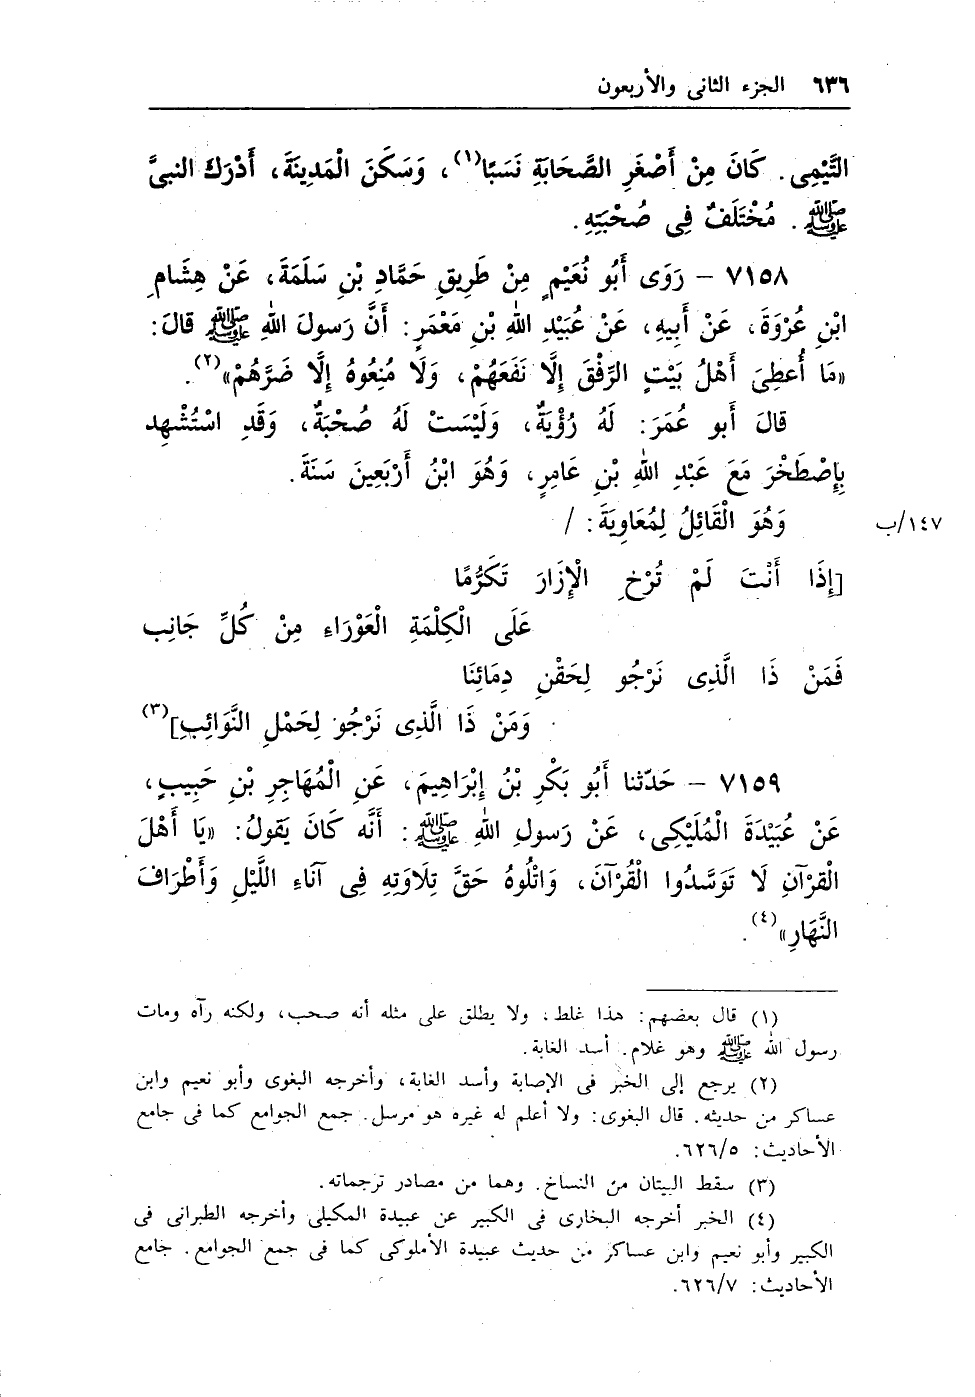 ٦٣٦ الجزء الثانى والأربعون
التَّيْمِى. كَانَ مِنْ أَصْغَرِ الصَّحَابَةِ نَسَبًا(١)، وَسَكَنَ الْمَدِينَةَ، أَدْرَكَ النبىَّ
ﷺ. مُخْتَلَفٌ فِى صُحْبَتِهِ.
٧١٥٨ – رَوَى أَبُو نُعَيْمٍ مِنْ طَرِيقِ حَمَّادِ بْنِ سَلَمَةَ، عَنْ هِشَامِ
ابْنِ عُرْوَةَ، عَنْ أَبِيهِ، عَنْ عُبَيْدِ اللهِ بْنِ مَعْمَرٍ: أَنَّ رَسولَ اللهِ ﷺ قالَ:
«مَا أُعطِىَ أَهْلُ بَيْتٍ الرِّفْقَ إِلَّا نَفَعَهُمْ، وَلَا مُنِعُوهُ إِلَّا ضَرَّهُمْ»(٢).
قالَ أَبو عُمَرَ: لَهُ رُؤْيَةٌ، وَلَيْسَتْ لَهُ صُحْبَةٌ، وَقَدِ اسْتُشْهِد
بِإِصْطَخْرَ مَعَ عَبْدِ اللهِ بْنِ عَامِرٍ، وَهُوَ ابْنُ أَرْبَعِينَ سَنَةَ.
وَهُوَ الْقَائِلُ لِمُعَاوِيَةَ: / ١٤٧/ب
[إِذَا أَنْتَ لَمْ تُرْخِ الْإِزَارَ تَكَرُّمًا
عَلَى الْكِلْمَةِ الْعَوْرَاءِ مِنْ كُلِّ جَانِب
فَمَنْ ذَا الَّذِى نَرْجُو لِحَقْنِ دِمَائِنَا
وَمَنْ ذَا الَّذِى نَرْجُو لِحَمْلِ النَّوَائِبِ](٣)
٧١٥٩ – حَدّثنا أَبُو بَكْرِ بْنُ إِبْرَاهِيمَ، عَنِ الْمُهَاجِرِ بْنِ حَبِيبٍ،
عَنْ عُبَيْدَةَ الْمُلَيْكِى، عَنْ رَسولِ اللهِ ﷺ: أَنَّه كَانَ يَقولُ: «يَا أَهْلَ
الْقرْآنِ لَا تَوَسَّدُوا الْقُرْآنَ، وَاتْلُوهُ حَقَّ تِلَاوَتِهِ فِى آنَاءِ اللَّيْلِ وَأَطْرَافَ
النَّهَارِ»(٤).
(١) قال بعضهم: هذا غلط، ولا يطلق على مثله أنه صحب، ولكنه رآه ومات
رسول الله ﷺ وهو غلام. أسد الغابة.
(٢) يرجع إلى الخبر فى الإصابة وأسد الغابة، وأخرجه البغوى وأبو نعيم وابن
عساكر من حديثه. قال البغوى: ولا أعلم له غيره هو مرسل. جمع الجوامع كما فى جامع
الأحاديث: ٦٢٦/٥.
(٣) سقط البيتان من النساخ. وهما من مصادر ترجماته.
(٤) الخبر أخرجه البخارى فى الكبير عن عبيدة المكيلى وأخرجه الطبرانى فى
الكبير وأبو نعيم وابن عساكر من حديث عبيدة الأملوكى كما فى جمع الجوامع. جامع
الأحاديث: ٦٢٦/٧.